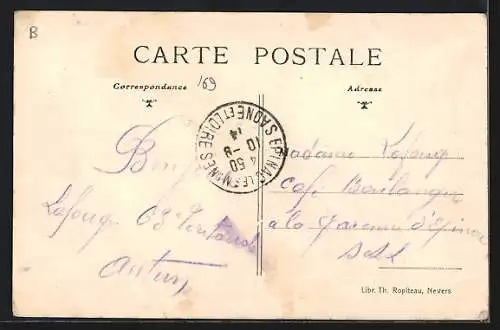 B
CARTE POSTALE
Correspondance
169
Adresse
EPINAC-LES-MINES SAONE ET LOIRE
4 50
10 -8
14
Madame Lafouge
Café Boulanger
à la Garenne d'Epinac
S&L
Lafouge 63e
Autun
Libr. Th. Ropiteau, Nevers